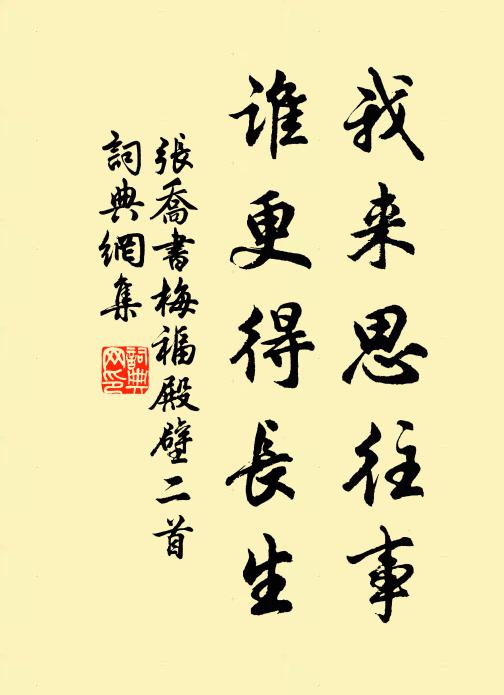 我来思往事
谁更得長生
張喬書梅福殿壁二首
詞典網集
詞典
网印